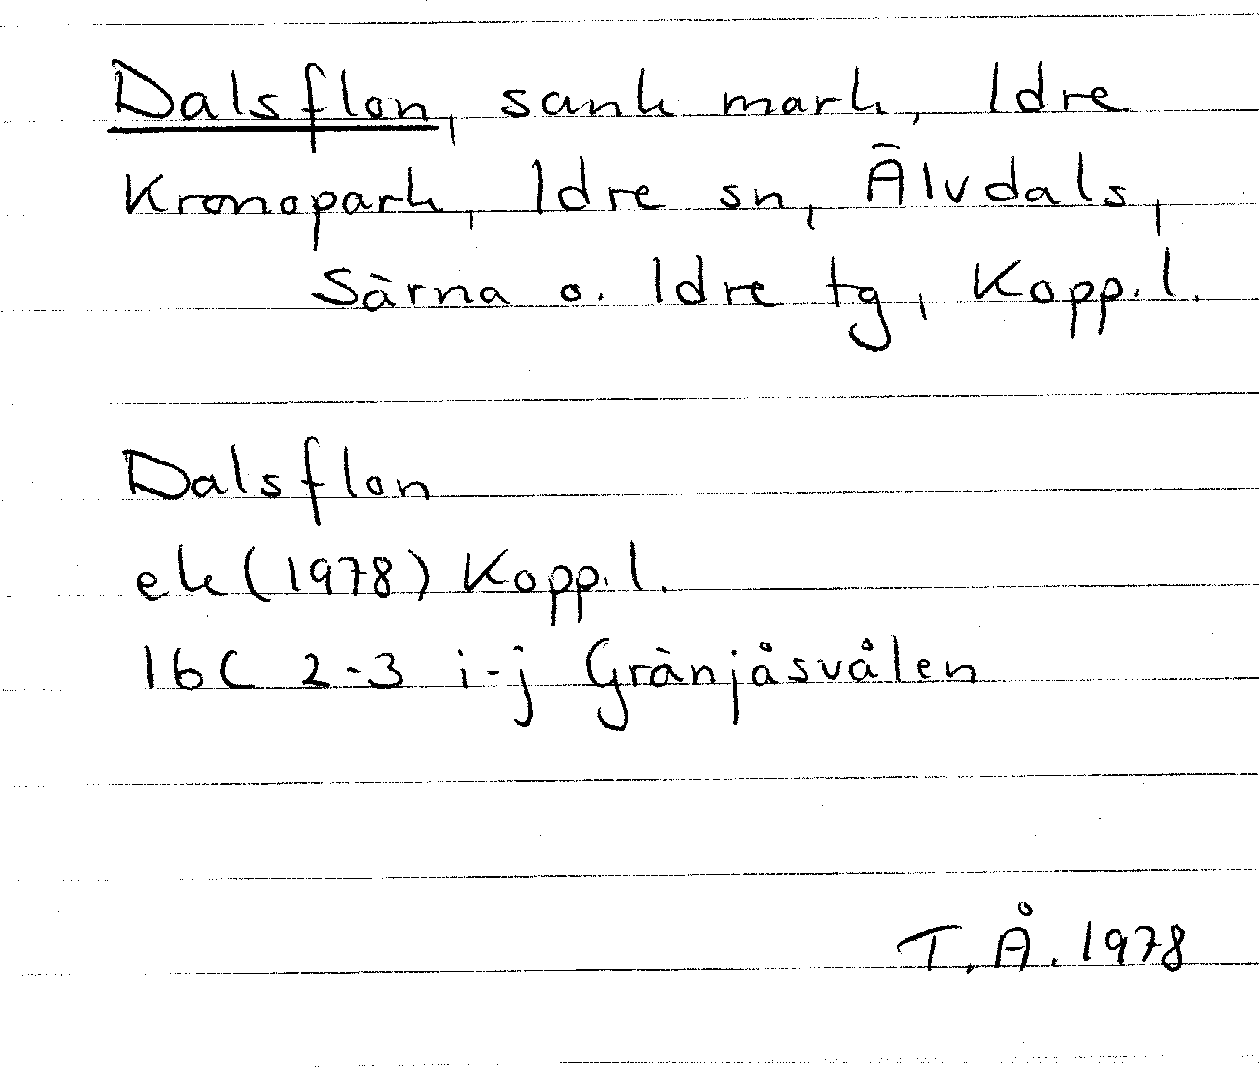 Dalsflon, sank mark, Idre
Kronopark, Idre sn, Älvdals,
Särna o. Idre tg, Kopp. l.
Dalsflon
ek (1978) Kopp. l.
16C 2-3 i-j Gränjåsvålen
T.Å. 1978